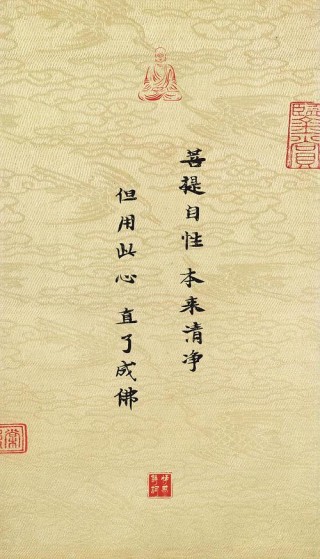 菩提自性 本来清净
但用此心 直了成佛